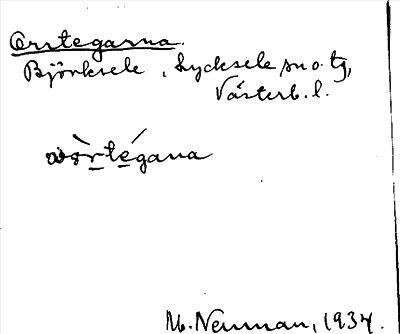 Orrtegarna.
Björksele, Lycksele sn o. tg,
Västerb. l.
wòrtégana
M. Neuman, 1937.